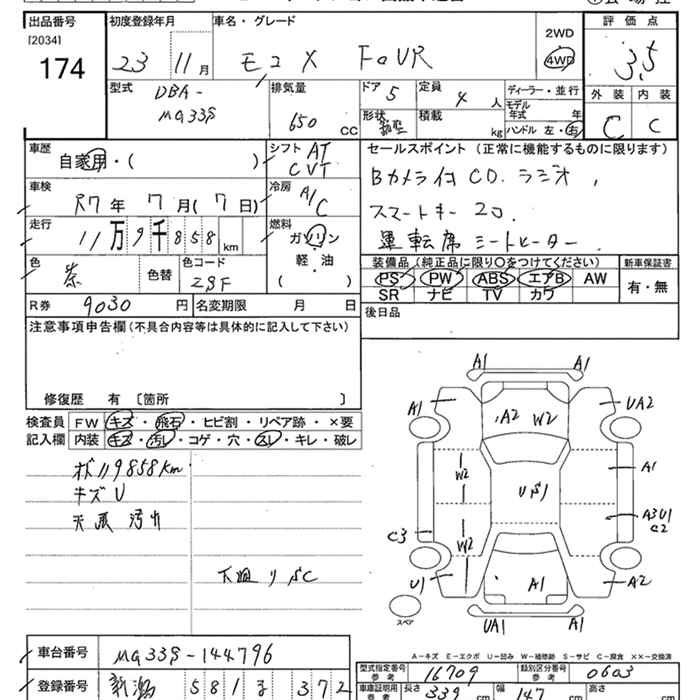 出品番号 初度登録年月 車名・グレード 評価点
[2034]
174
23 年 11 月
モコ X FOUR
2WD
4WD
3.5
型式 DBA-
MG33S
排気量
650 cc
ドア 5
定員 4 人
形状
積載 kg
ディーラー・並行
モデル年式 年
ハンドル 左・右
外装 内装
C C
車歴
自家用・( )
シフト AT
CVT
セールスポイント (正常に機能するものに限ります)
Bカメラ付 CD. ラジオ,
スマートキー 2コ.
運転席シートヒーター.
車検
R7 年 7 月 (7 日)
冷房
A/C
走行
11 万 9 千 8 5 8 km
燃料
ガソリン
軽・油
( )
色 茶 色替
色コード
ZSF
装備品 (純正品に限り○をつけてください) 新車保証書
PS PW ABS エアB AW 有・無
SR ナビ TV カワ
R券 9030 円 名変期限 月 日
後日品
注意事項申告欄 (不具合内容等は具体的に記入して下さい)
修復歴 有 [箇所 ]
検査員 FW キズ・飛石・ヒビ割・リペア跡・×要
記入欄 内装 キズ・汚レ・コゲ・穴・スレ・キレ・破レ
119858km
キズ U
天張 汚れ
下廻り SC
A1 A1
A1 A2 W2 UA2
W2 US1 A1
W2 A3U1
C2
C3
U1 A1 A2
スペア
UA1 A1
A-キズ E-エクボ U-凹み W-補修跡 S-サビ C-腐食 ××-交換済
車台番号 MG33S-144796
登録番号 新潟 581 る 372
型式指定番号 参考 16709 類別区分番号 参考 0603
車庫証明用 参考 長さ 339 cm 幅 147 cm 高さ cm